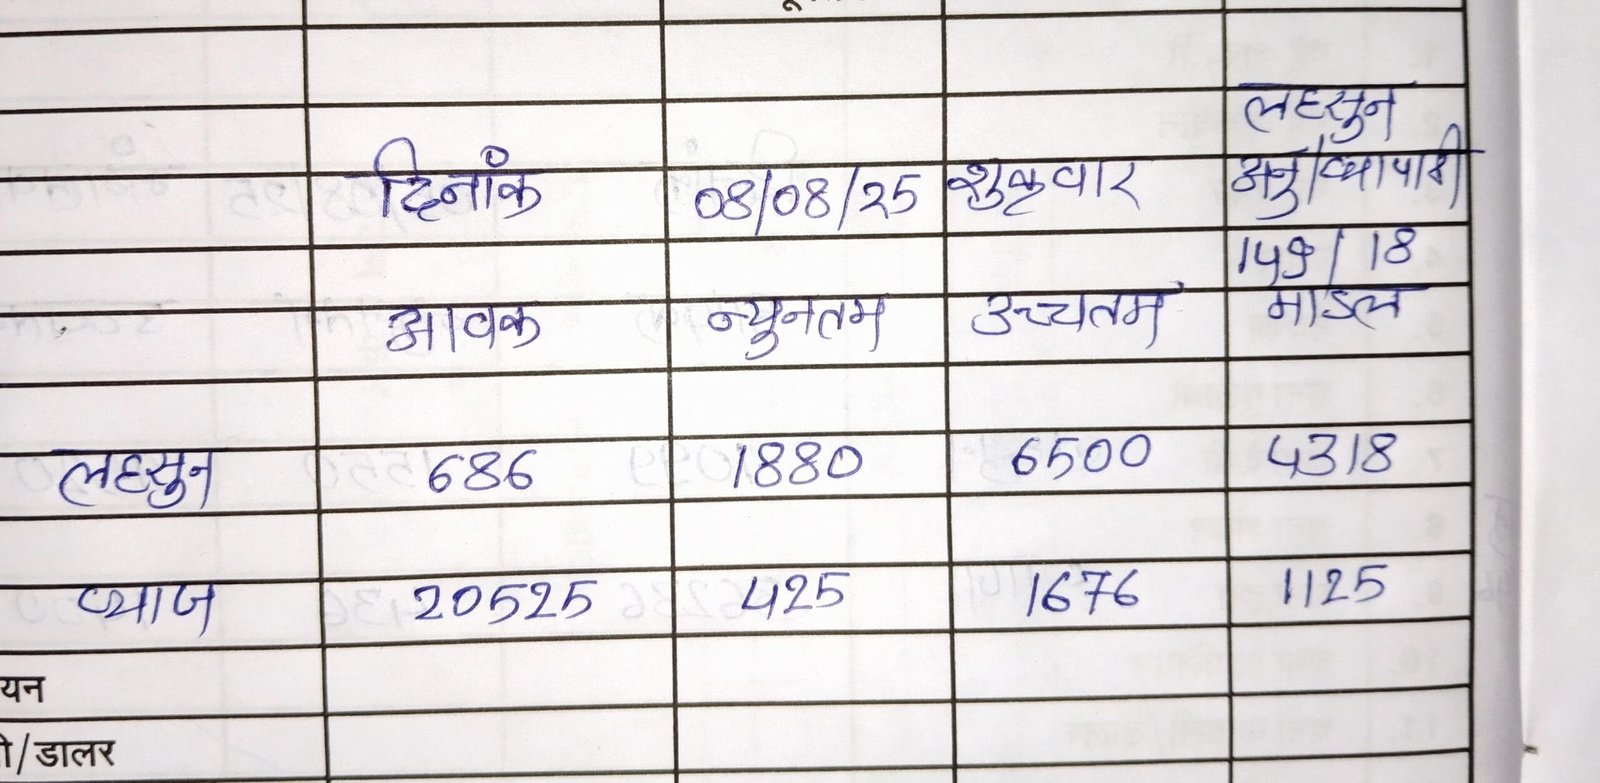 लहसुन
दिनांक 08/08/25 शुक्रवार अनु/व्यापारी
149/18
आवक न्युनतम उच्चतम माडल
लहसुन 686 1880 6500 4318
प्याज 20525 425 1676 1125
यन
/डालर